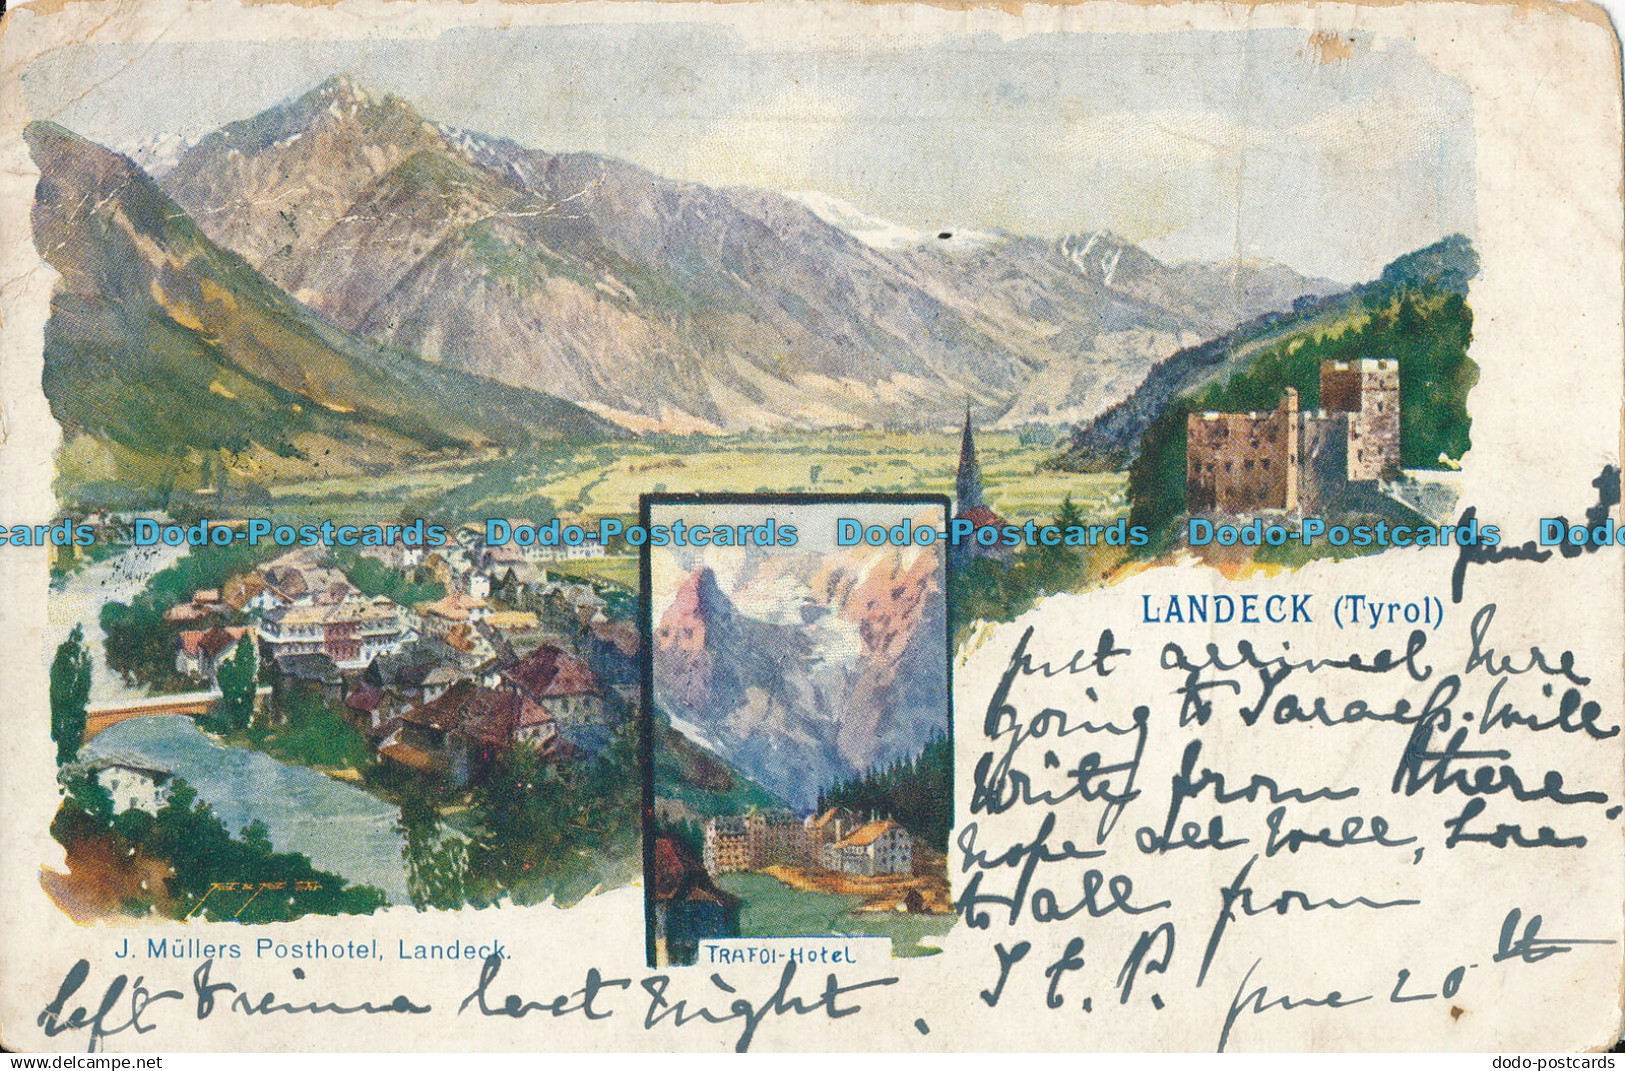 Dodo-Postcards Dodo-Postcards Dodo-Postcards Dodo-Postcards Dodo-Postcards
LANDECK (Tyrol)
June
just arrived here
going to Tarasp. Will
write from there,
hope all well, Love
to all from
June 20th
J. Müllers Posthotel, Landeck.
TRAFOI-Hotel
left Vienna last night.
dodo-postcards.com